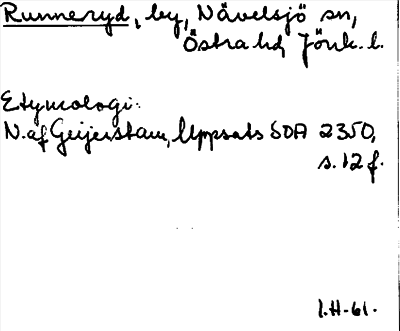 Runneryd, by, Nävelsjö sn,
Östra hd, Jönk. l.
Etymologi:
N. af Geijerstam, Uppsats SOA 2350,
s. 12 f.
I.H-61.